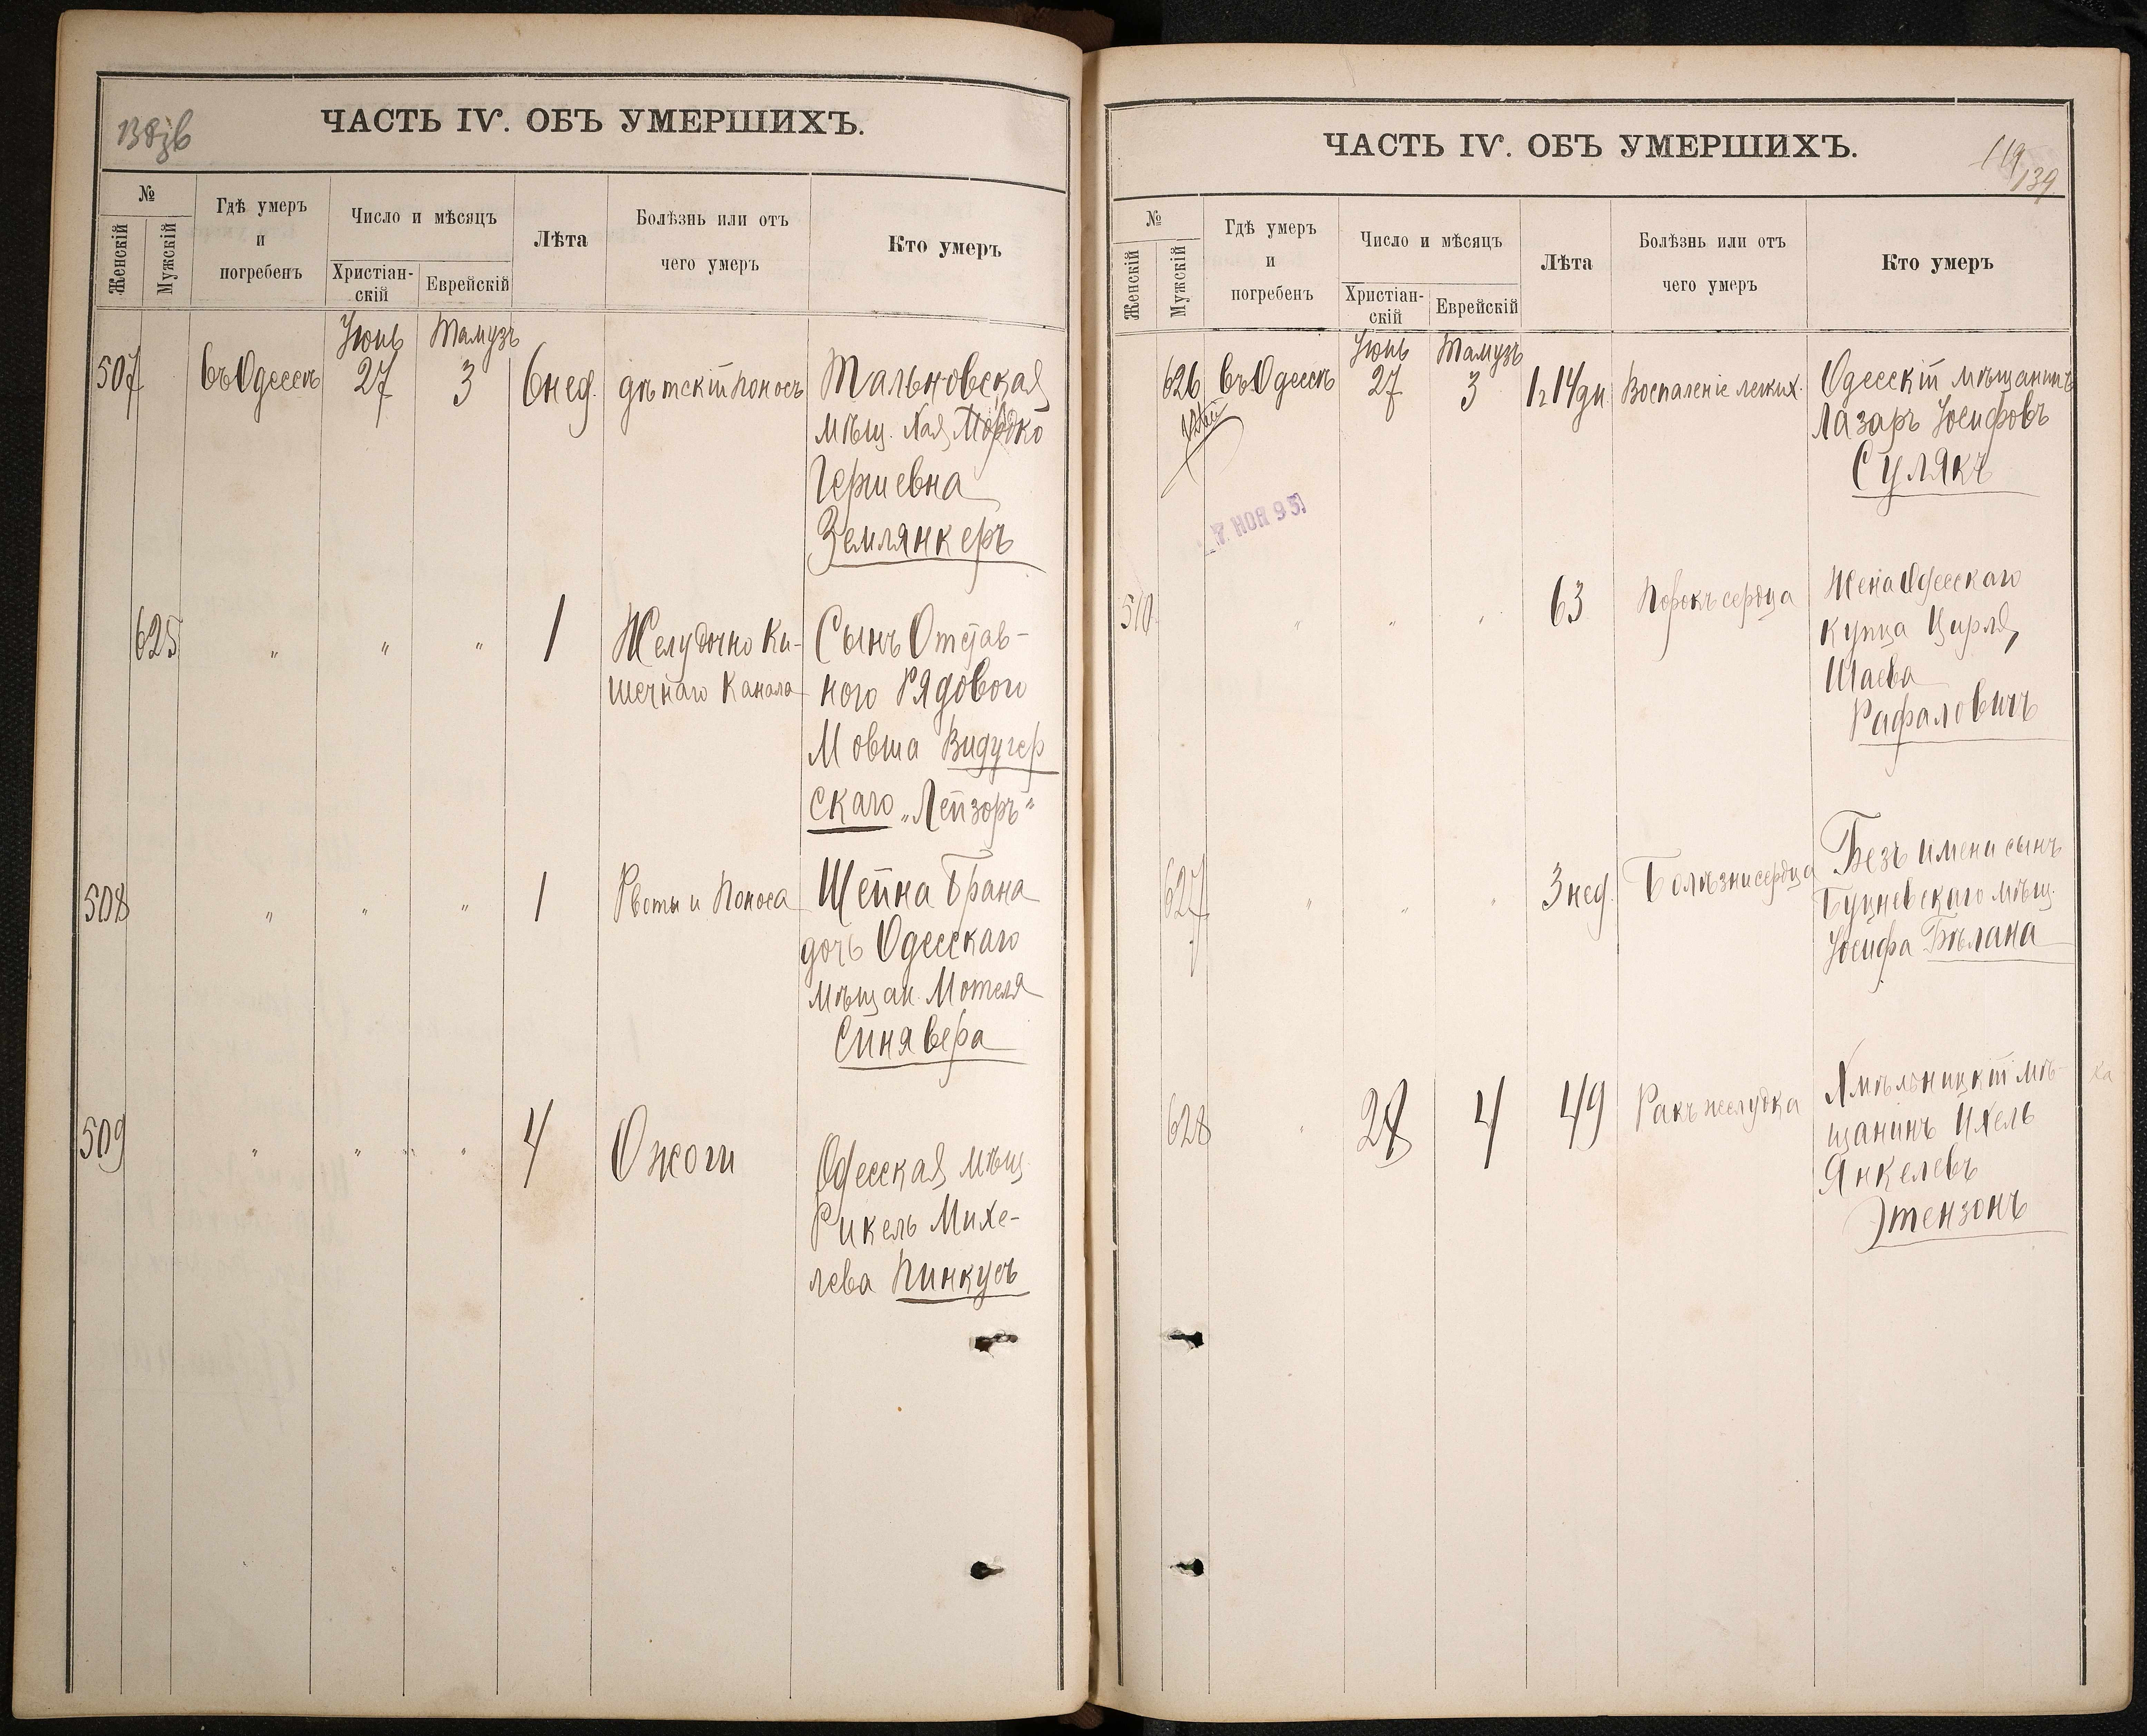 138зв
ЧАСТЬ IV. ОБЪ УМЕРШИХЪ.
№
Женскій
Мужскій
Гдѣ умеръ
и
погребенъ
Число и мѣсяцъ
Христіан-
скій
Еврейскій
Лѣта
Болѣзнь или отъ
чего умеръ
Кто умеръ
Іюнь Тамузъ
507 въ Одессѣ 27 3 6 нед. дѣтскій поносъ Тальновская
мѣщ. Хая Мордко
Гершевна
Землянкеръ
625 " " " 1 Желудочно Ки- Сынъ Отстав-
шечнаго Канала ного Рядового
Мовша Видугер
скаго „Лейзоръ"
508 " " " 1 Рвоты и Поноса Шейна Брана
дочь Одесскаго
мѣщан. Мотеля
Синявера
509 " " " " 4 Ожоги Одесская мѣщ.
Рикель Михе-
лева Пинкусъ
ЧАСТЬ IV. ОБЪ УМЕРШИХЪ.
119
139
№
Женскій
Мужскій
Гдѣ умеръ
и
погребенъ
Число и мѣсяцъ
Христіан-
скій
Еврейскій
Лѣта
Болѣзнь или отъ
чего умеръ
Кто умеръ
Іюнь Тамузъ
626 въ Одессѣ 27 3 1г 14 дн. Воспаленіе легких. Одесскій мѣщанинъ
Лазарь Іосифовъ
Сулякъ
7 НОЯ 95
510 " " " 63 Порокъ сердца Жена Одесскаго
купца Цирля
Шаева
Рафаловичъ
627 " " " 3 нед. Болѣзни сердца Безъ имени сынъ
Буцневскаго мѣщ.
Іосифа Бѣлана
628 " 28 4 49 Ракъ желудка Хмѣльницкій мѣ-
щанинъ Ихель
Янкелевъ
Этензонъ